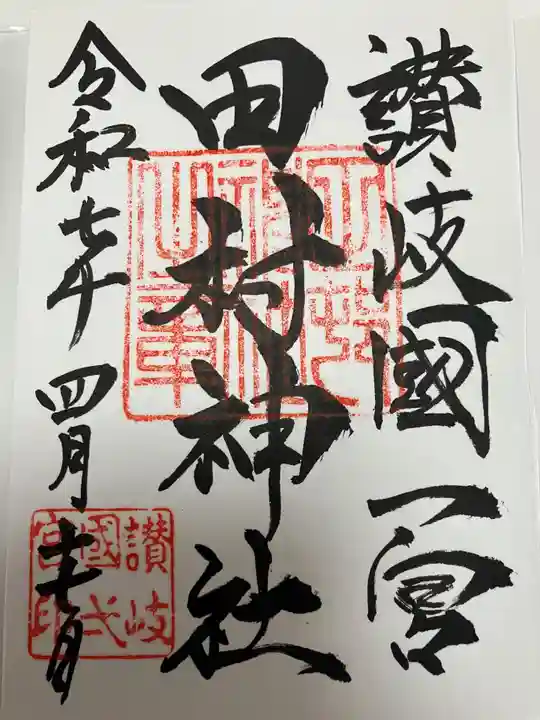 讃岐國一宮
田村神社
令和七年四月十七日
讃岐國弌宮印